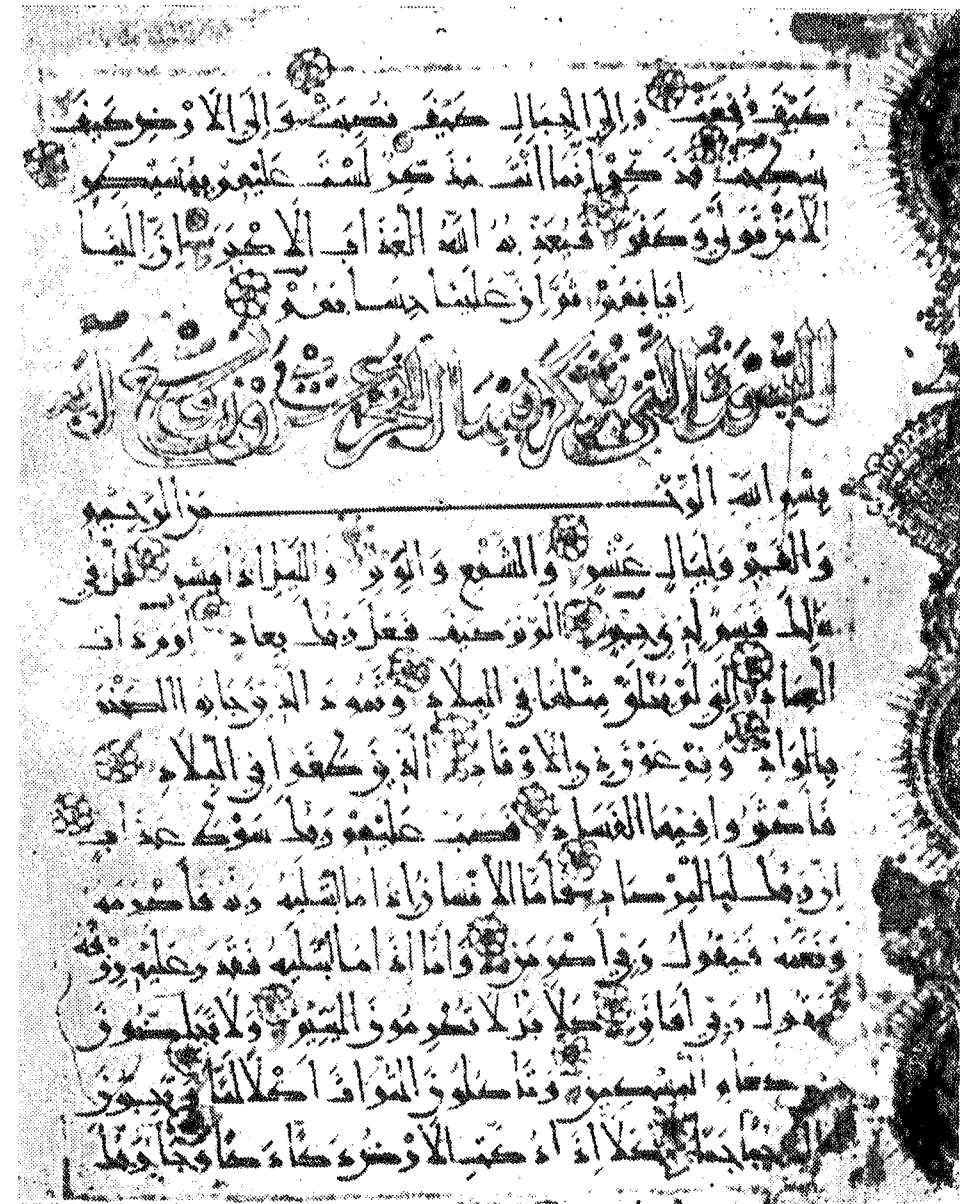 كيف رفعت والى الجبال كيف نصبت والى الارض كيف
سطحت فذكر انما انت مذكر لست عليهم بمصيطر
الا من تولى وكفر فيعذبه الله العذاب الاكبر ان الينا
ايابهم ثم ان علينا حسابهم
بسم الله الرحمن الرحيم
والفجر وليال عشر والشفع والوتر واليل اذا يسر هل في
ذلك قسم لذي حجر الم تر كيف فعل ربك بعاد ارم ذات
العماد التي لم يخلق مثلها في البلاد وثمود الذين جابوا الصخر
بالواد وفرعون ذي الاوتاد الذين طغوا في البلاد
فاكثروا فيها الفساد فصب عليهم ربك سوط عذاب
ان ربك لبالمرصاد فاما الانسان اذا ما ابتليه ربه فاكرمه
ونعمه فيقول ربي اكرمن واما اذا ما ابتليه فقدر عليه رزقه
فيقول ربي اهانن كلا بل لا تكرمون اليتيم ولا تحاضون
على طعام المسكين وتاكلون التراث اكلا لما وتحبون
المال حبا جما كلا اذا دكت الارض دكا دكا وجا ربك